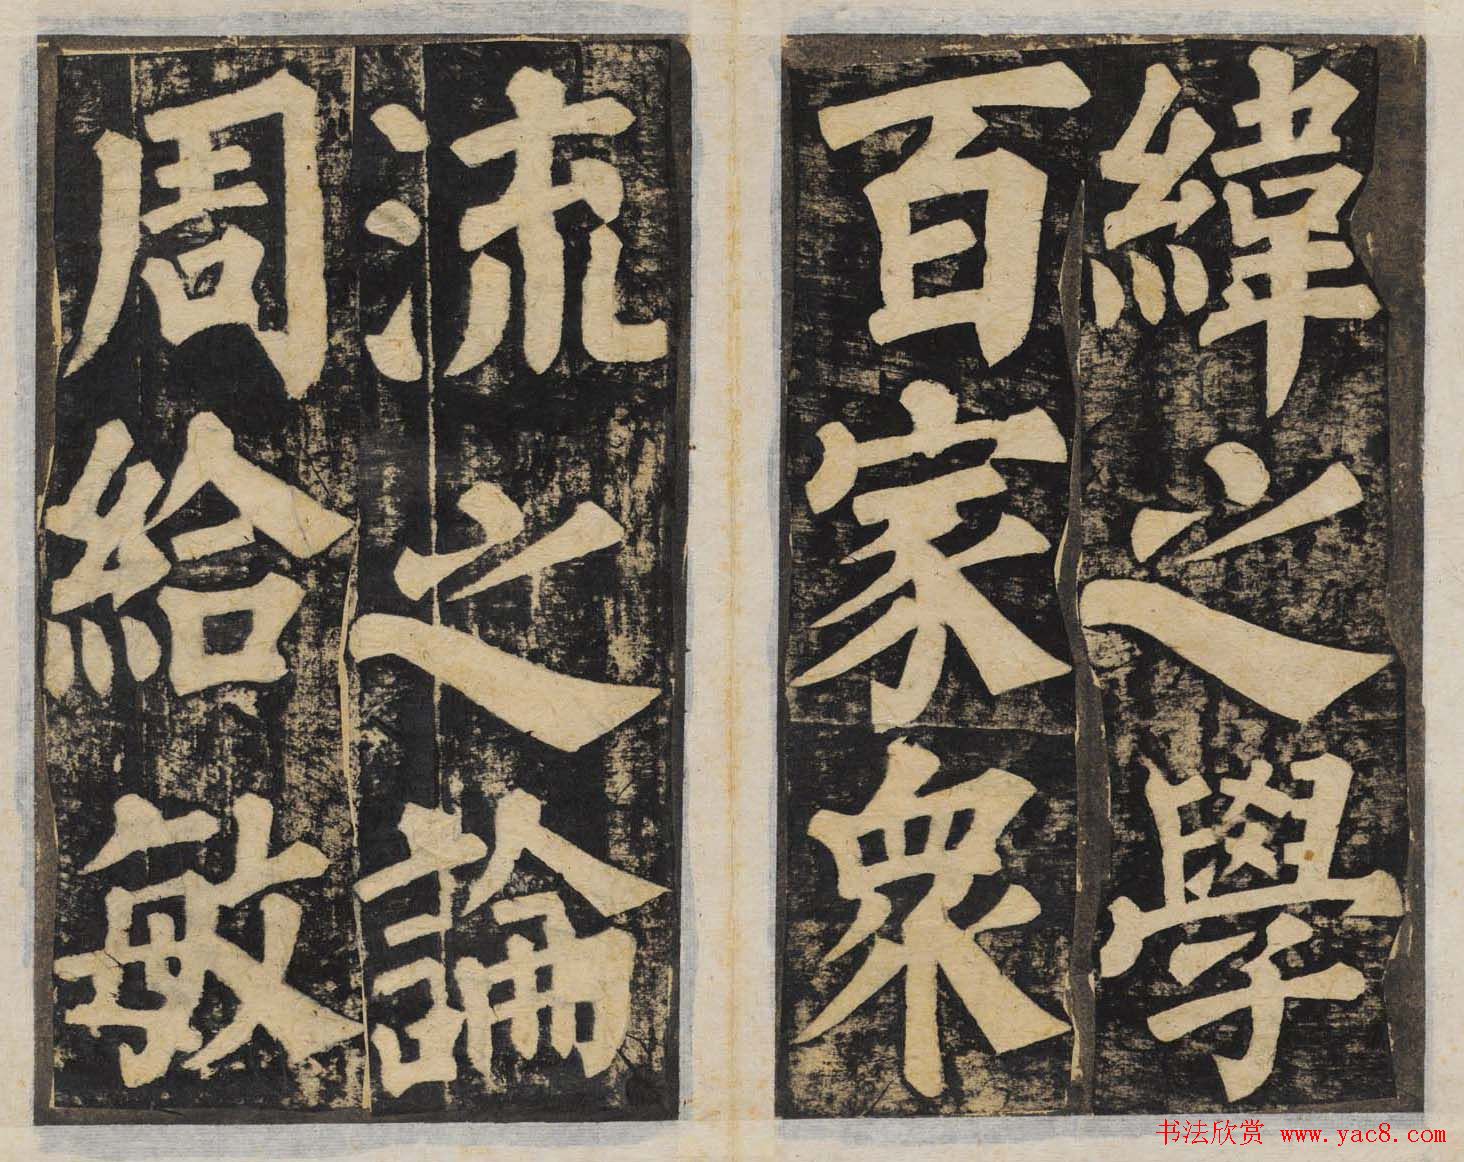 緯之學
百家衆
流之論
周給敏
书法欣赏 www.yac8.com